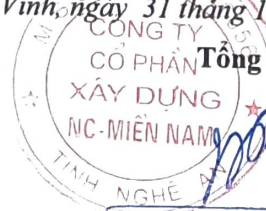 Vinh, ngày 31 tháng 1
CÔNG TY
CỔ PHẦN Tổng
XÂY DỰNG
NC-MIỀN NAM
TỈNH NGHỆ AN